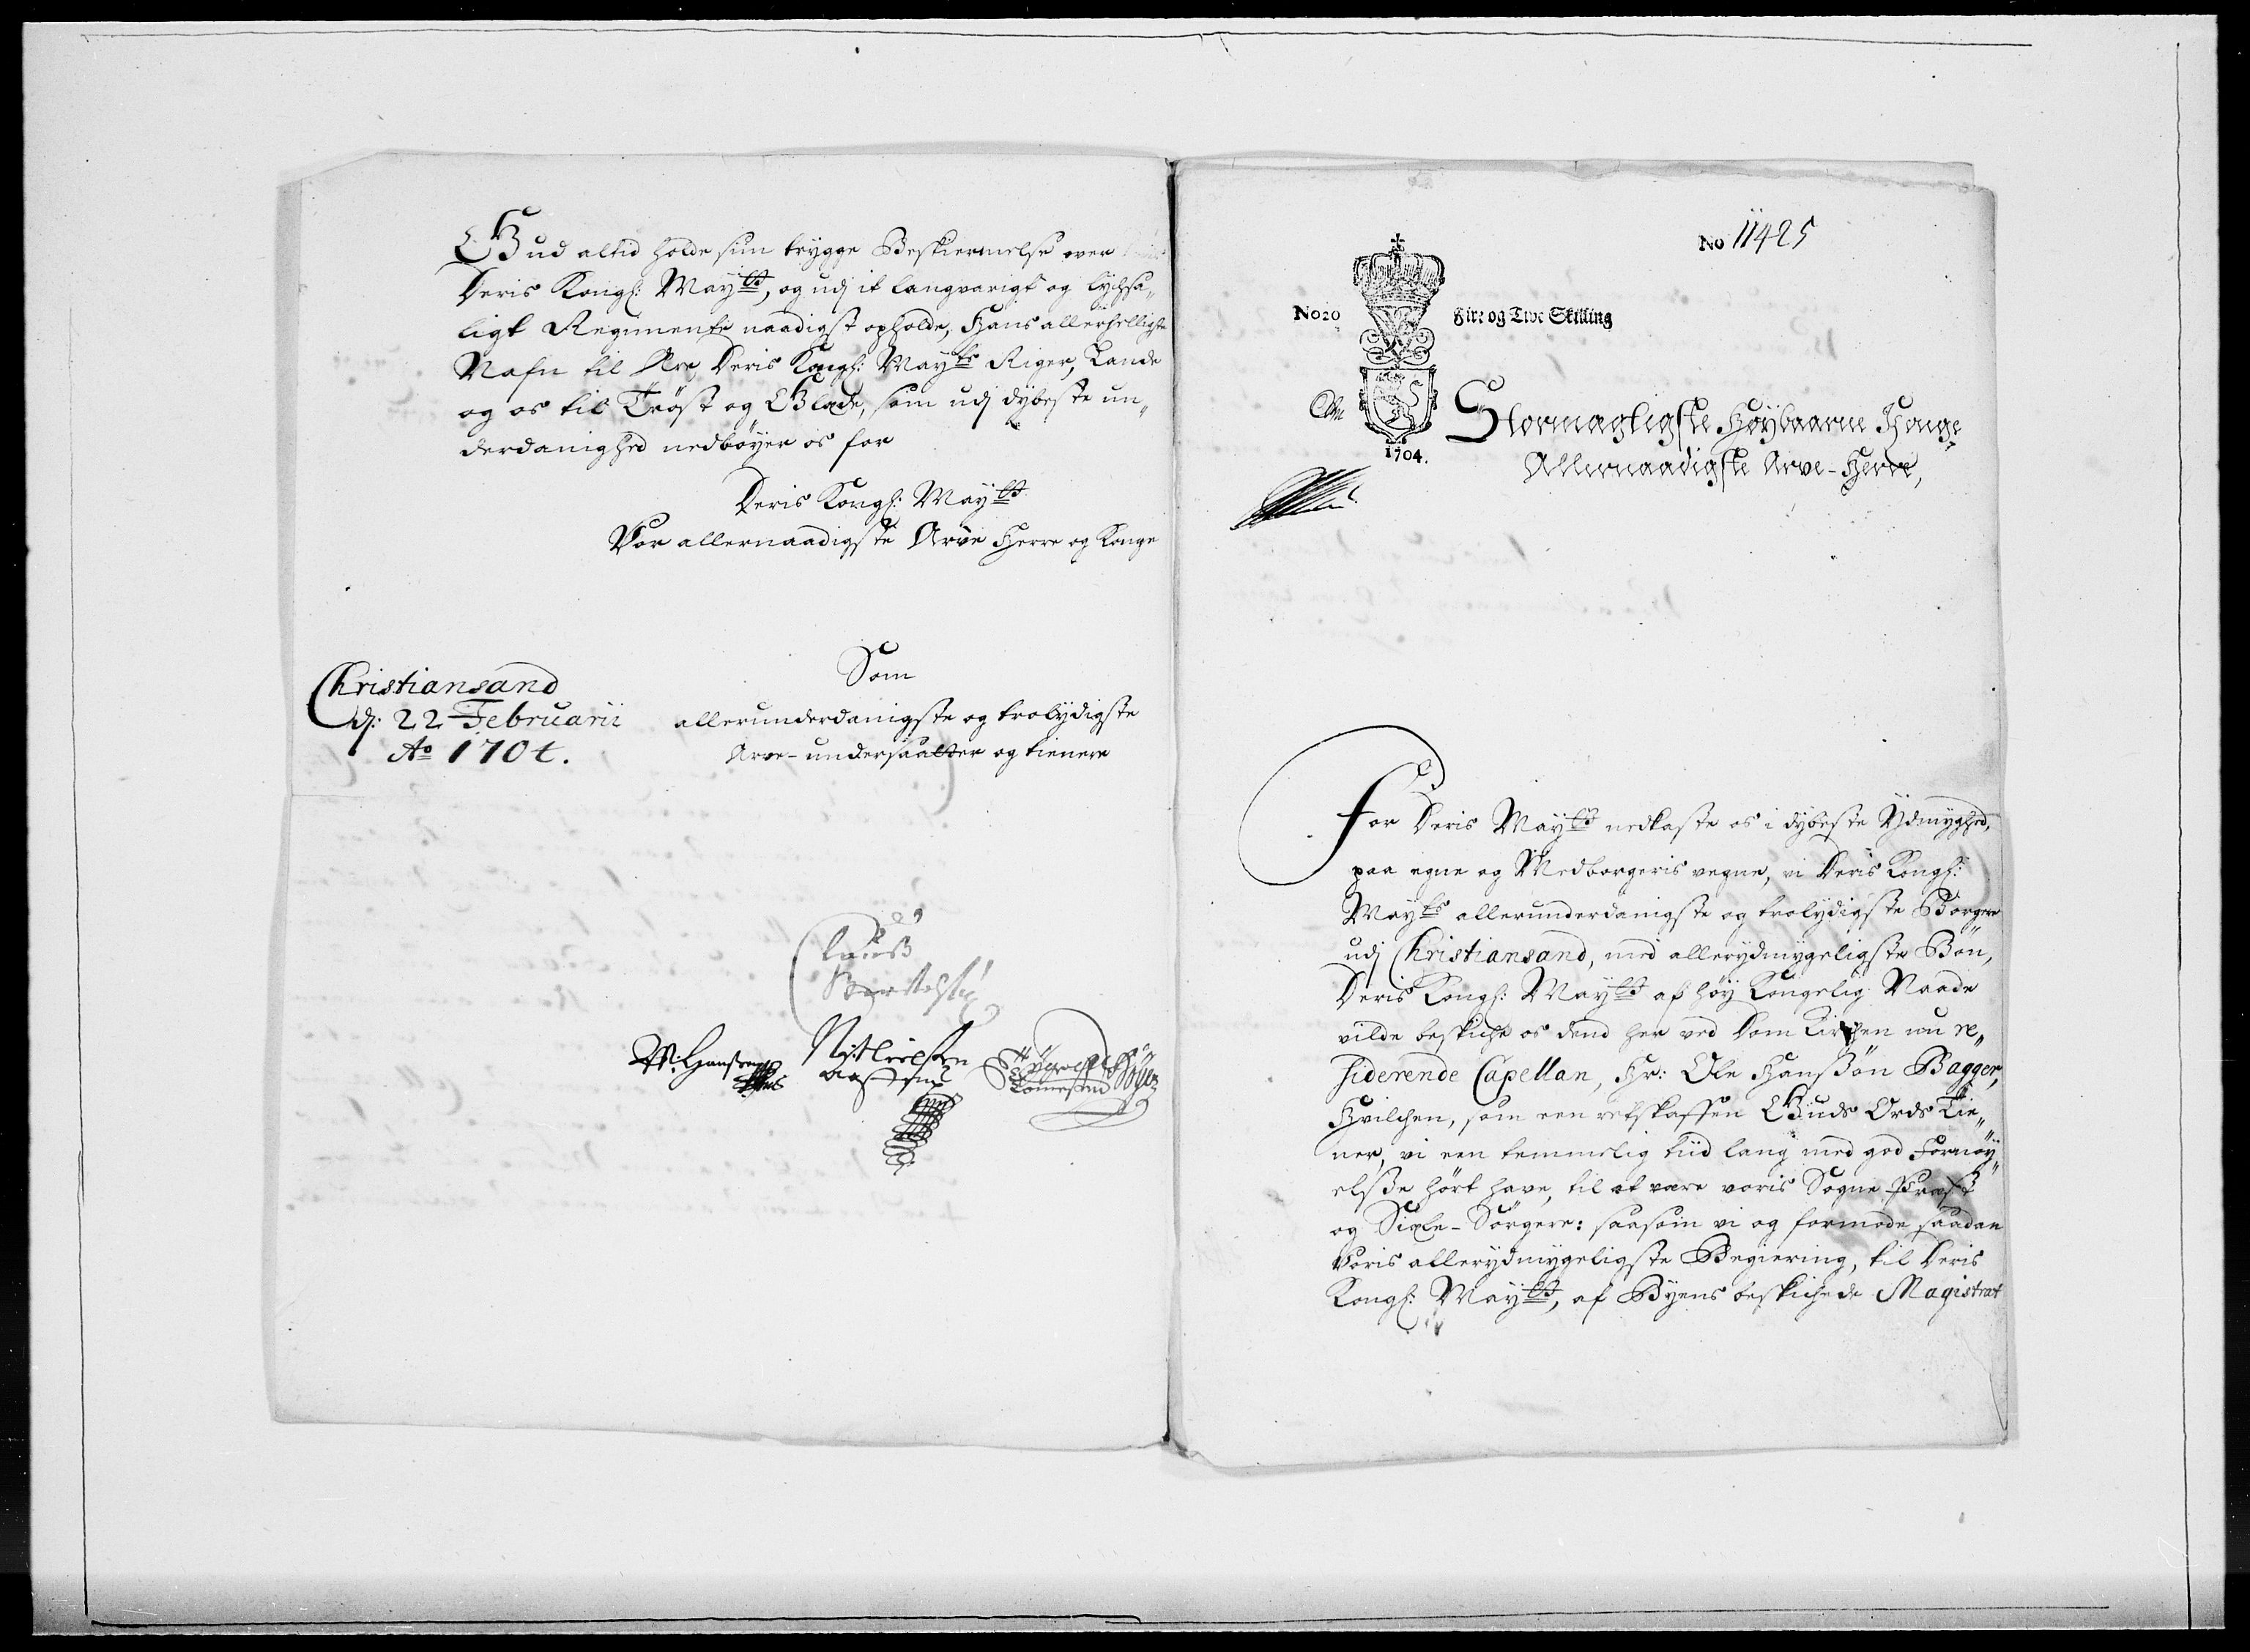 Gud altid holde sin trygge Beskiermelse over
Deris Kongl: Mayts, og udj it langvarigt og lychsa„
ligt Regimente naadigst opholde, Hans allerhelligste
Nafn til Ære, Deris Kongl: Mayts Riger, Lande
og os til Tröst og Glæde, som udj dybeste un„
derdanighed nedböyer os for
Deris Kongl: Mayts
Vor allernaadigste Arve Herre og Konge
Som
Christiansand
d: 22 Februarii
Ao 1704.
allerunderdanigste og trolydigste
Arve-undersaatter og tienere
Claus
Bertelsen
Hansen
Nielsen
No 11425
No 20
Fire og Tive Skilling
1704.
Stormægtigste Höybaarne Konge
Allernaadigste Arve-Herre,
For Deris Mayts nedkaste os i dybeste Ydmyghed,
paa egne og Medborgeris vegne, vi Deris Kongl:
Mayts allerunderdanigste og trolydigste Borgere
udj Christiansand, med allerydmygeligste Bön,
Deris Kongl: Mayts af höy Kongelig Naade
vilde beskiche os dend her ved Dom Kirchen nu re„
siderende Capellan, Hr: Ole Hansßön Bagger,
Hvilchen, som een retskaffen Guds Ords Tie„
ner, vi een temmelig tiid lang med god Fornöy„
elsße hört have, til at være voris Sogne Præst
og Siæle-Sörgere: saasom vi og formode saadan
Voris allerydmygeligste Begiering, til Deris
Kongl: Mayts, af Byens beskichede Magistrat